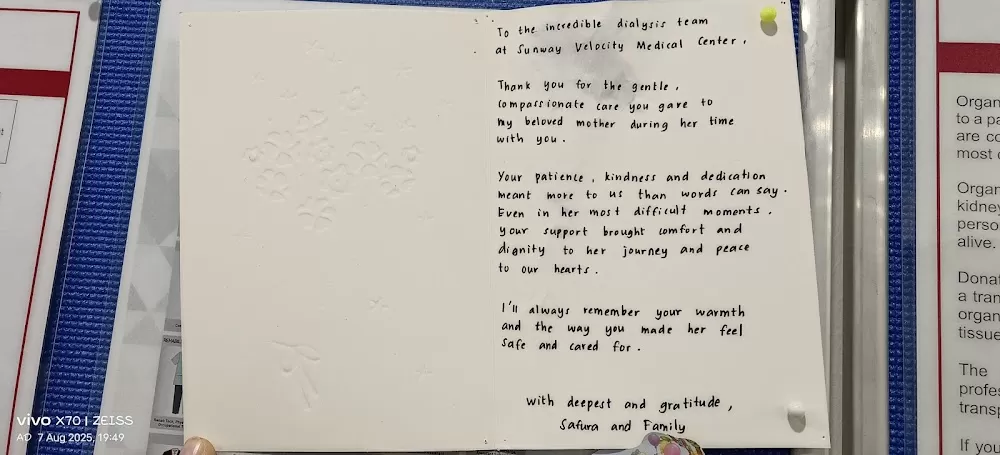 To the incredible dialysis team
at Sunway Velocity Medical Center,
Thank you for the gentle,
compassionate care you gave to
my beloved mother during her time
with you.
Your patience, kindness and dedication
meant more to us than words can say.
Even in her most difficult moments,
your support brought comfort and
dignity to her journey and peace
to our hearts.
I'll always remember your warmth
and the way you made her feel
safe and cared for.
with deepest and gratitude,
Safura and Family
Organ
to a pa
are co
most c
Organ
kidney
perso
alive.
Donat
a tran
organ
tissue
The
profes
transp
If you
vivo X70 | ZEISS
AD 7 Aug 2025, 19:49